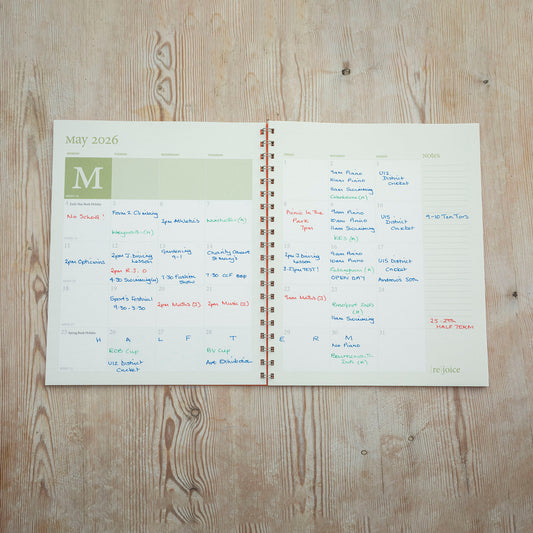 May 2026
M
Notes
4 Early May Bank Holiday
No School!
5
Form 2 Climbing
6
2pm Athletics
7
1
2
9am Piano
10am Piano
11am Swimming
3
U12
District
Cricket
8
Picnic In The
Park
7pm
9
9am Piano
10am Piano
11am Swimming
KES (A)
10
U15
District
Cricket
9-10 Ten Tors
11
2pm Opticians
12
2pm J. Driving
Lesson
2pm R.J. O
4.30 Swimming(J)
13
Gardening
9-1
7.30 Fashion
Show
14
Charity Concert
St Mary's
7.30 CCF
15
2pm J. Driving
Lesson
16
9am Piano
10am Piano
OPEN DAY
17
U15 District
Cricket
Andrew's 50th
18
19
Sports Festival
9.30 - 3.30
11am Swimming
20
2pm Maths (J)
21
2pm Music (J)
22
9am Maths (J)
23
11am Swimming
24
25 Spring Bank Holiday
26
27
28
29
30
31
HALF TERM
ROB Cup
U12 District
Cricket
BV Cup
Art Exhibition
No Piano
HALF TERM
re:joice